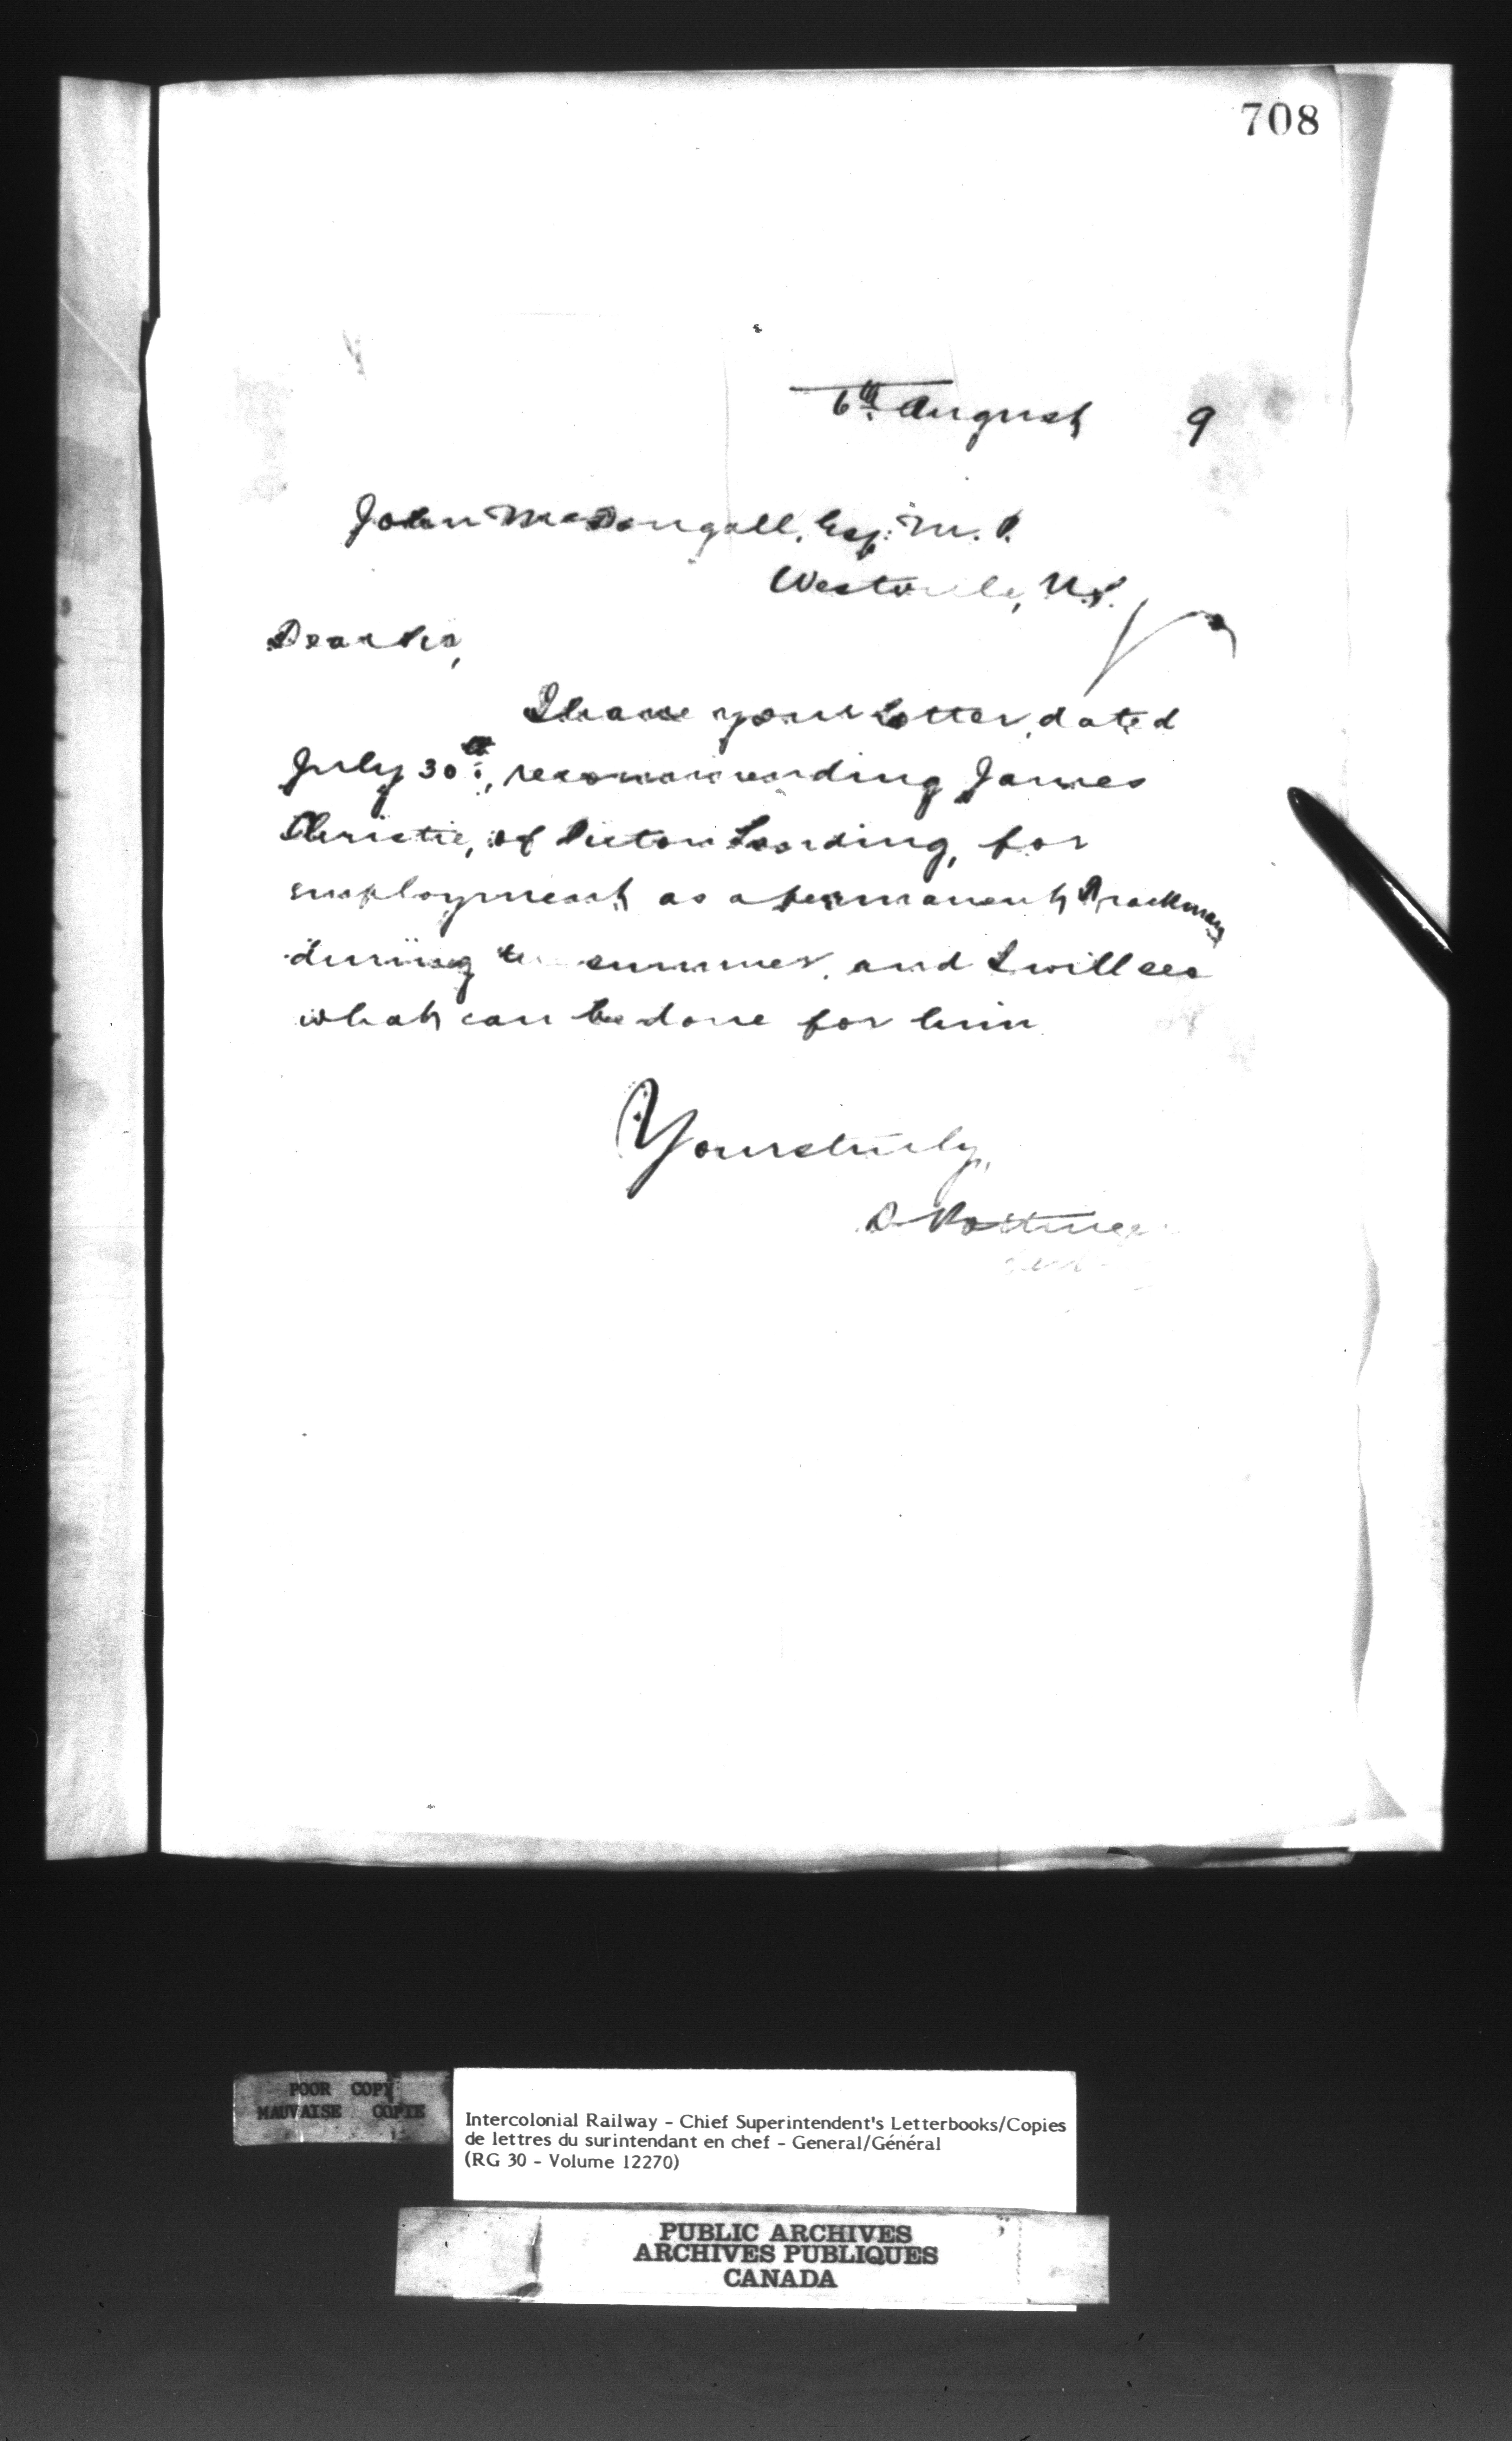 708
6th August 9
John McDougall, Esq: M.P.
Westville, N.S.
Dear Sir,
I have your letter, dated
July 30th, recommending James
Christie, of Pictou Landing, for
employment as a permanent Trackman
during the summer, and I will see
what can be done for him.
Yours truly,
D Pottinger
POOR COPY
MAUVAISE COPIE
Intercolonial Railway - Chief Superintendent's Letterbooks/Copies
de lettres du surintendant en chef - General/Général
(RG 30 - Volume 12270)
PUBLIC ARCHIVES
ARCHIVES PUBLIQUES
CANADA